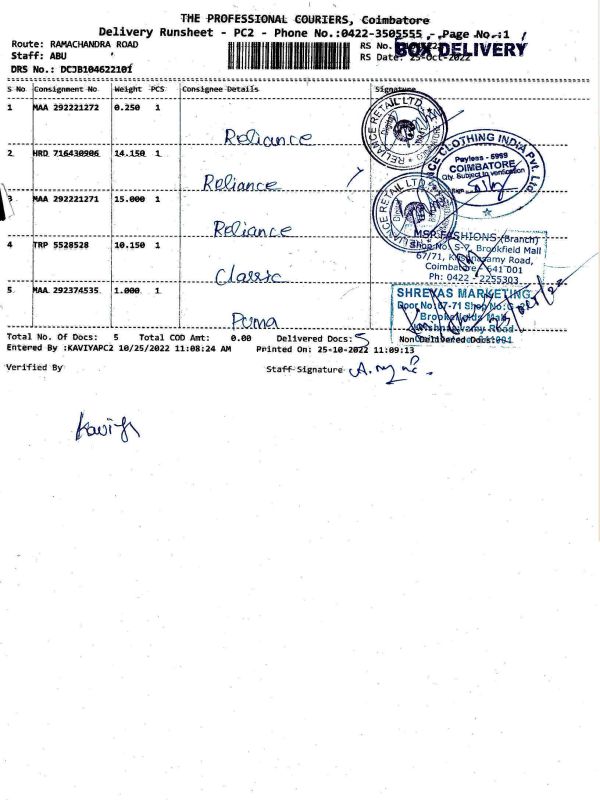 THE PROFESSIONAL COURIERS, Coimbatore
Delivery Runsheet - PC2 - Phone No.:0422-3505555 - Page No.:1
Route: RAMACHANDRA ROAD
RS No.
BOX DELIVERY
Staff: ABU
RS Date: 25-Oct-2022
DRS No.: DCJB104622101
S No Consignment No Weight PCS Consignee Details Signature
1 MAA 292221272 0.250 1
Reliance
2 HRD 716430906 14.150 1
Reliance
3 MAA 292221271 15.000 1
Reliance
4 TRP 5528528 10.150 1
Classic
5 MAA 292374535 1.000 1
Puma
RELIANCE RETAIL LTD.
COIMBATORE
CLOTHING INDIA Pvt. Ltd.
Payless - 5999
COIMBATORE
Qty. Subject to verification
Sign
RELIANCE RETAIL LTD.
Digital
MSP FASHIONS (Branch)
Shop No. S-7, Brookfield Mall
67/71, Krishnasamy Road,
Coimbatore - 641 001
Ph: 0422 - 2255303
SHREYAS MARKETING
Door No:67-71 Shop No:G
Brookefields Mall
Krishnaswamy Road
Total No. Of Docs: 5 Total COD Amt: 0.00 Delivered Docs: 5 Non Delivered Docs:
Entered By :KAVIYAPC2 10/25/2022 11:08:24 AM Printed On: 25-10-2022 11:09:13
Verified By Staff Signature